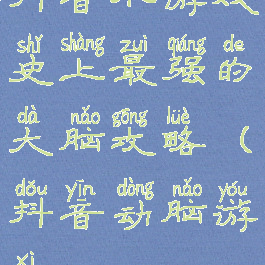 shǐ shàng zuì qiáng de
史上最强的
dà nǎo gōng lüè
大脑攻略(
dǒu yīn dòng nǎo yóu
抖音动脑游
xì